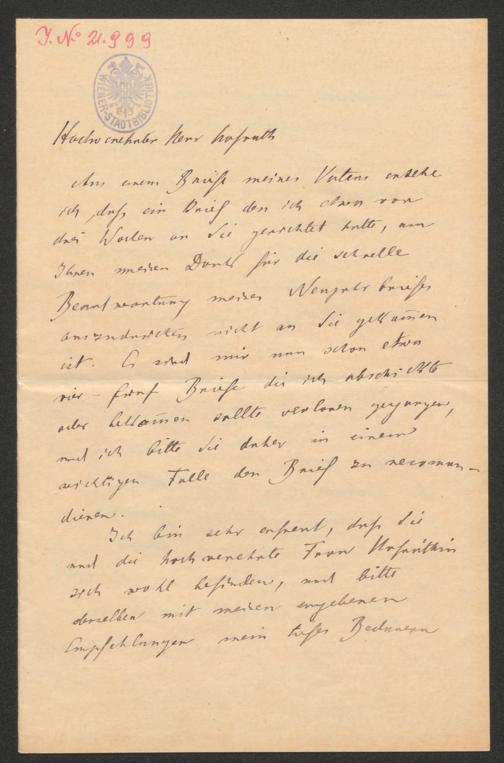 J. No 21.999
WIENER-STADTBIBLIOTHEK
Hochverehrter Herr Hofrath
Aus einem Briefe meines Vaters ersehe
ich daß ein Brief den ich etwa vor
drei Wochen an Sie gerichtet hatte, um
Ihnen meinen Dank für die schnelle
Beantwortung meines Neujahrsbriefes
auszudrücken nicht an Sie gekommen
ist. Es sind mir nun schon etwa
vier-fünf Briefe die ich abschickte
oder bekommen sollte verloren gegangen,
und ich bitte Sie daher in einem
wichtigen Falle den Brief zu recoman-
dieren.
Ich bin sehr erfreut, daß Sie
und die hochverehrte Frau Hofräthin
sich wohl befinden, und bitte
derselben mit meinen ergebenen
Empfehlungen mein tiefes Bedauern